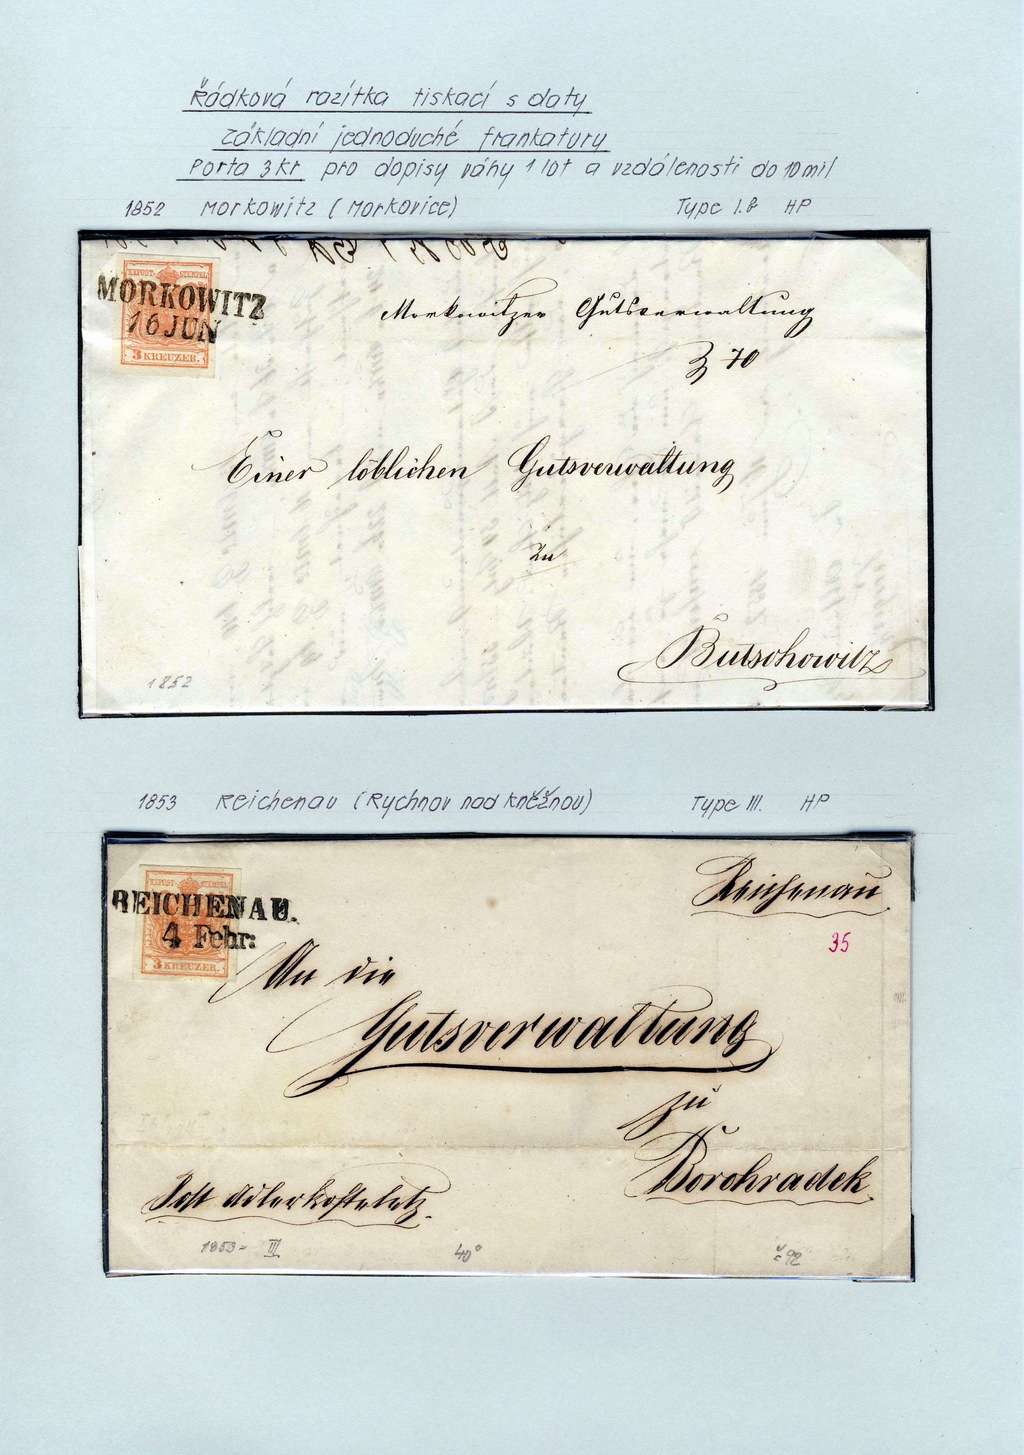 Řádková razítka tiskací s daty
základní jednoduché frankatury
Porta 3kr pro dopisy váhy 1 lot a vzdálenosti do 10 mil
1852 Morkowitz (Morkovice) Type I.b HP
KKPOST-STEMPEL
MORKOWITZ
16 JUN
3 KREUZER.
Morkowitzer Gutsverwaltung
70
Einer löblichen Gutsverwaltung
zu
Butschowitz
1852
1853 Reichenau (Rychnov nad Kněžnou) Type III. HP
KKPOST-STEMPEL
REICHENAU.
4 Febr:
3 KREUZER.
Reichenau
35
An die
Gutsverwaltung
zu
Borohradek.
Post Adlerkosteletz.
1853- III 40° č 92